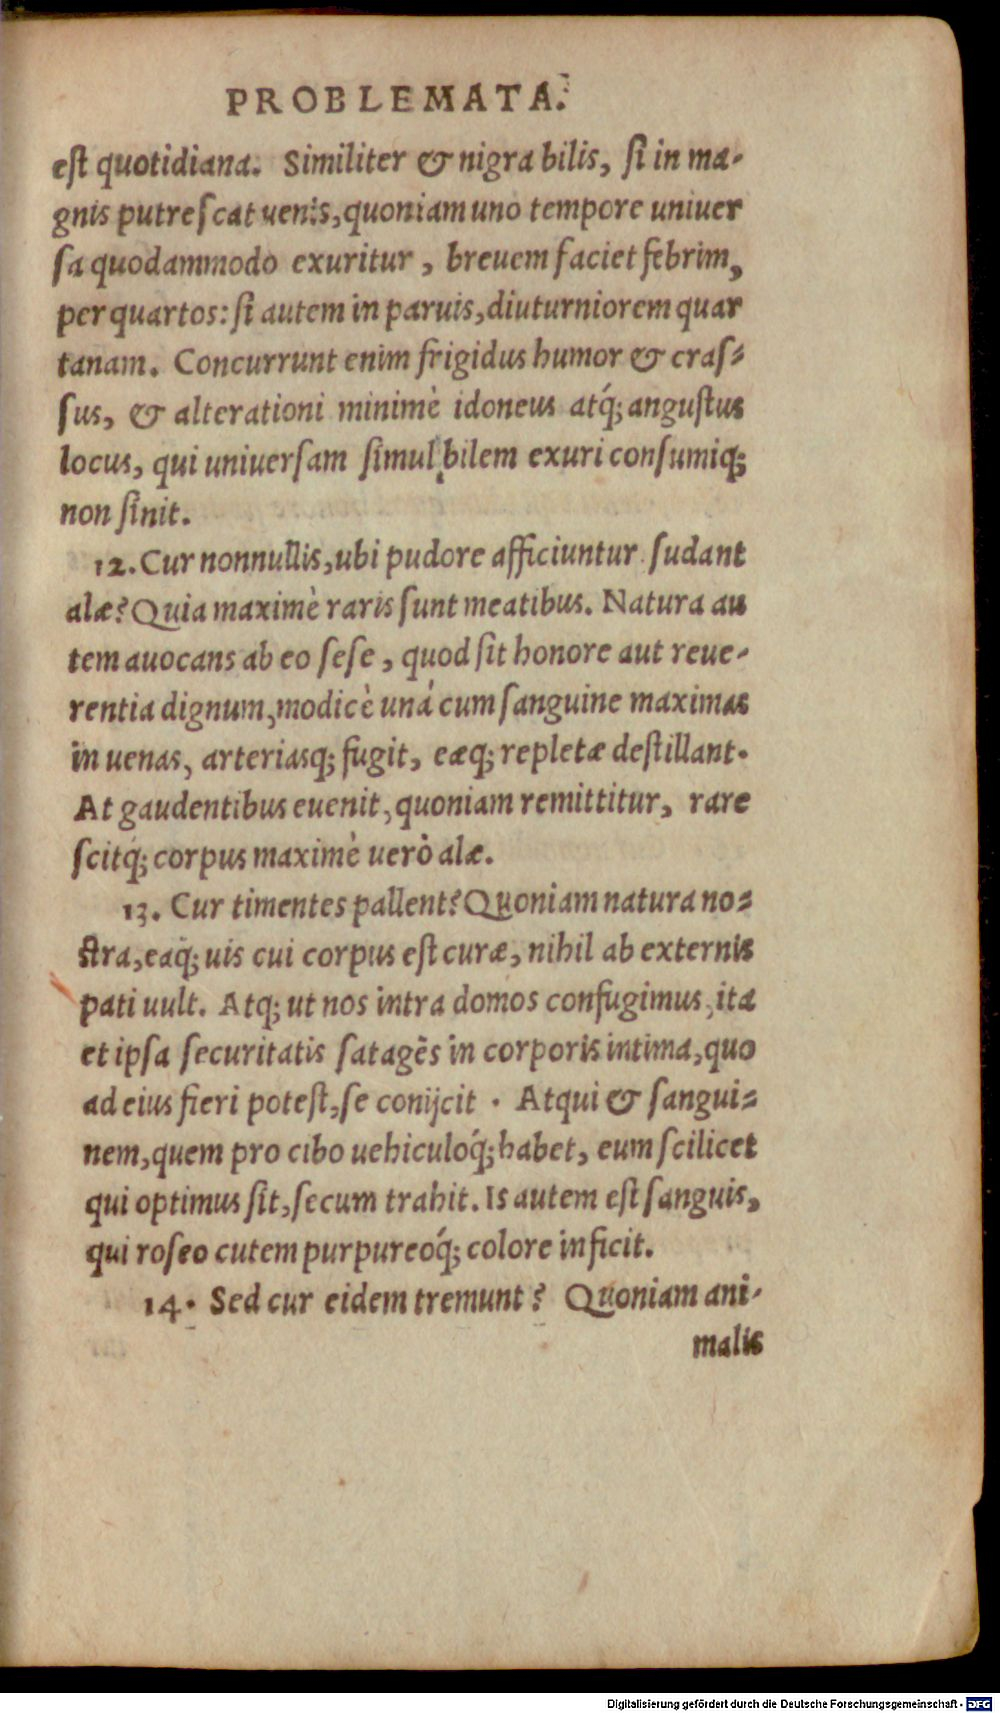 PROBLEMATA.
est quotidiana. Similiter & nigra bilis, si in ma-
gnis putrescat uenis, quoniam uno tempore uniuer
sa quodammodo exuritur, breuem faciet febrim,
per quartos: si autem in paruis, diuturniorem quar
tanam. Concurrunt enim frigidus humor & cras-
sus, & alterationi minimè idoneus atq́; angustus
locus, qui uniuersam simul bilem exuri consumiq́;
non sinit.
12. Cur nonnullis, ubi pudore afficiuntur sudant
alæ? Quia maximè raris sunt meatibus. Natura au
tem auocans ab eo sese, quod sit honore aut reue-
rentia dignum, modicè unà cum sanguine maximas
in uenas, arteriasq́; fugit, eæq́; repletæ destillant.
At gaudentibus euenit, quoniam remittitur, rare
scitq́; corpus maximè uerò alæ.
13. Cur timentes pallent? Quoniam natura no-
stra, eaq́; uis cui corpus est curæ, nihil ab externis
pati uult. Atq; ut nos intra domos confugimus, ita
et ipsa securitatis satagẽs in corporis intima, quo
ad eius fieri potest, se conijcit. Atqui & sangui-
nem, quem pro cibo uehiculoq́; habet, eum scilicet
qui optimus sit, secum trahit. Is autem est sanguis,
qui roseo cutem purpureoq́; colore inficit.
14. Sed cur eidem tremunt? Quoniam ani-
malis
Digitalisierung gefördert durch die Deutsche Forschungsgemeinschaft - DFG